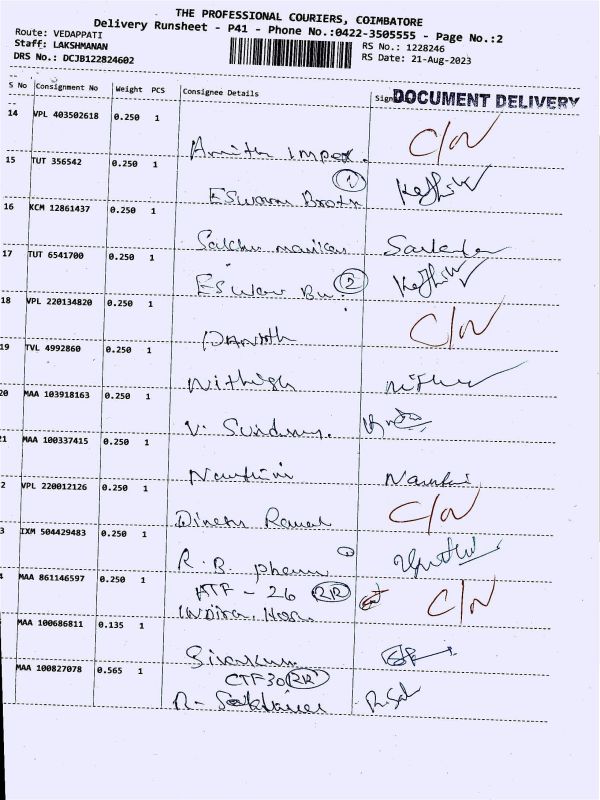 THE PROFESSIONAL COURIERS, COIMBATORE
Delivery Runsheet - P41 - Phone No.:0422-3505555 - Page No.:2
Route: VEDAPPATI
Staff: LAKSHMANAN
DRS No.: DCJB122824602
RS No.: 1228246
RS Date: 21-Aug-2023
S No Consignment No Weight PCS Consignee Details Sign
DOCUMENT DELIVERY
14 VPL 403502618 0.250 1
Amith Impex. C/N
15 TUT 356542 0.250 1
1
Eswaran
16 KCM 12861437 0.250 1
17 TUT 6541700 0.250 1
Eswar Bu. 2
18 VPL 220134820 0.250 1
C/N
19 TVL 4992860 0.250 1
Nithish
20 MAA 103918163 0.250 1
V.
21 MAA 100337415 0.250 1
2 VPL 220012126 0.250 1
Dinesh C/N
3 IXM 504429483 0.250 1
R.B. Pharm 1
4 MAA 861146597 0.250 1
ATF - 26 RR C/N
Indira
MAA 100686811 0.135 1
Sivakum
MAA 100827078 0.565 1
CTF30 RR
R-